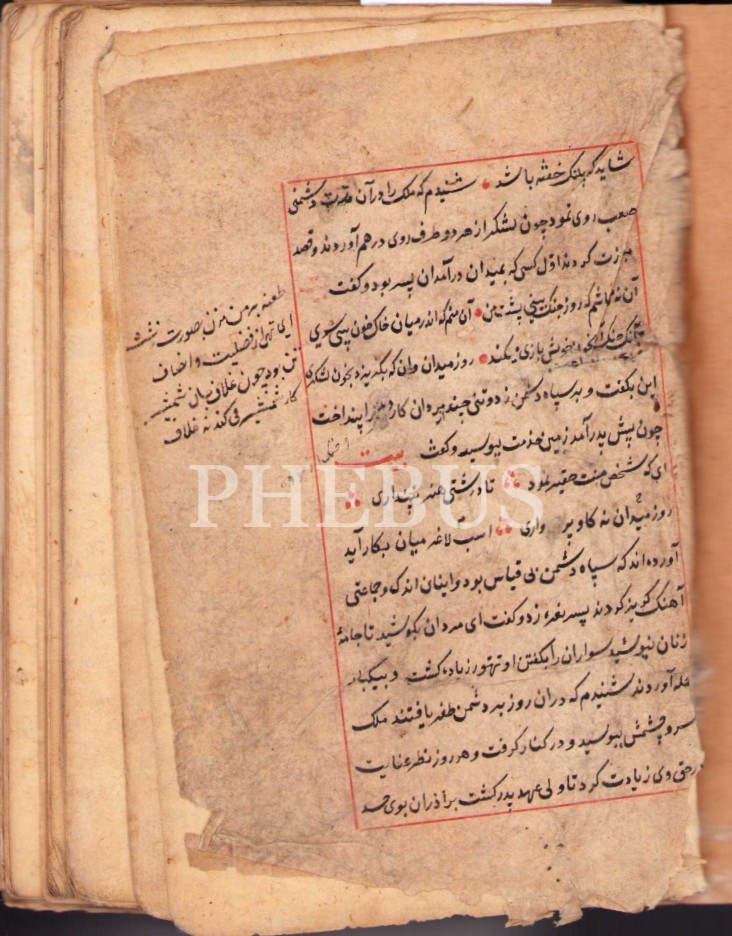 شاید که پلنک خفته باشد • شنیدم که ملک را در آن مدت دشمنی
صعب روی نمود چون لشکر از هر دو طرف روی درهم آوردند و قصد
مبارزت کردند اول کسی که بمیدان درآمد آن پسر بود و گفت
آن نه من باشم که روز جنک بینی پشت من • آن منم که اندر میان خاک و خون بینی سری
کانکه جنک آرد بخون خویش بازی میکند • روز میدان وانکه بگریزد بخون لشکری
این بگفت و بر سپاه دشمن زد و تنی چند مردان کاری را بینداخت
چون پیش پدر آمد زمین خدمت ببوسید و گفت بیت
ای که شخص منت حقیر نمود تا درشتی هنر نپنداری
روز میدان نه کاو پرواری اسب لاغر میان بکار آید
آورده اند که سپاه دشمن بی قیاس بود و اینان اندک و جماعتی
آهنک کریز کردند پسر نعره زد و گفت ای مردان بکوشید تا جامهٔ
زنان نپوشید سواران را بگفتن او تهور زیاده کشت و بیکبار
حمله آوردند شنیدم که در آن روز بر دشمن ظفر یافتند ملک
سر و چشمش ببوسید و در کنار کرفت و هر روز نظر عنایت
در حق وی زیادت کرد تا ولی عهد پدر کشت برادران بوی حسد
طعنه بر من مزن بصورت زشت
ای تهی از فضیلت و انصاف
تن بود چون غلاف جان شمشیر
کار شمشیر می کند نه غلاف
PHEBUS